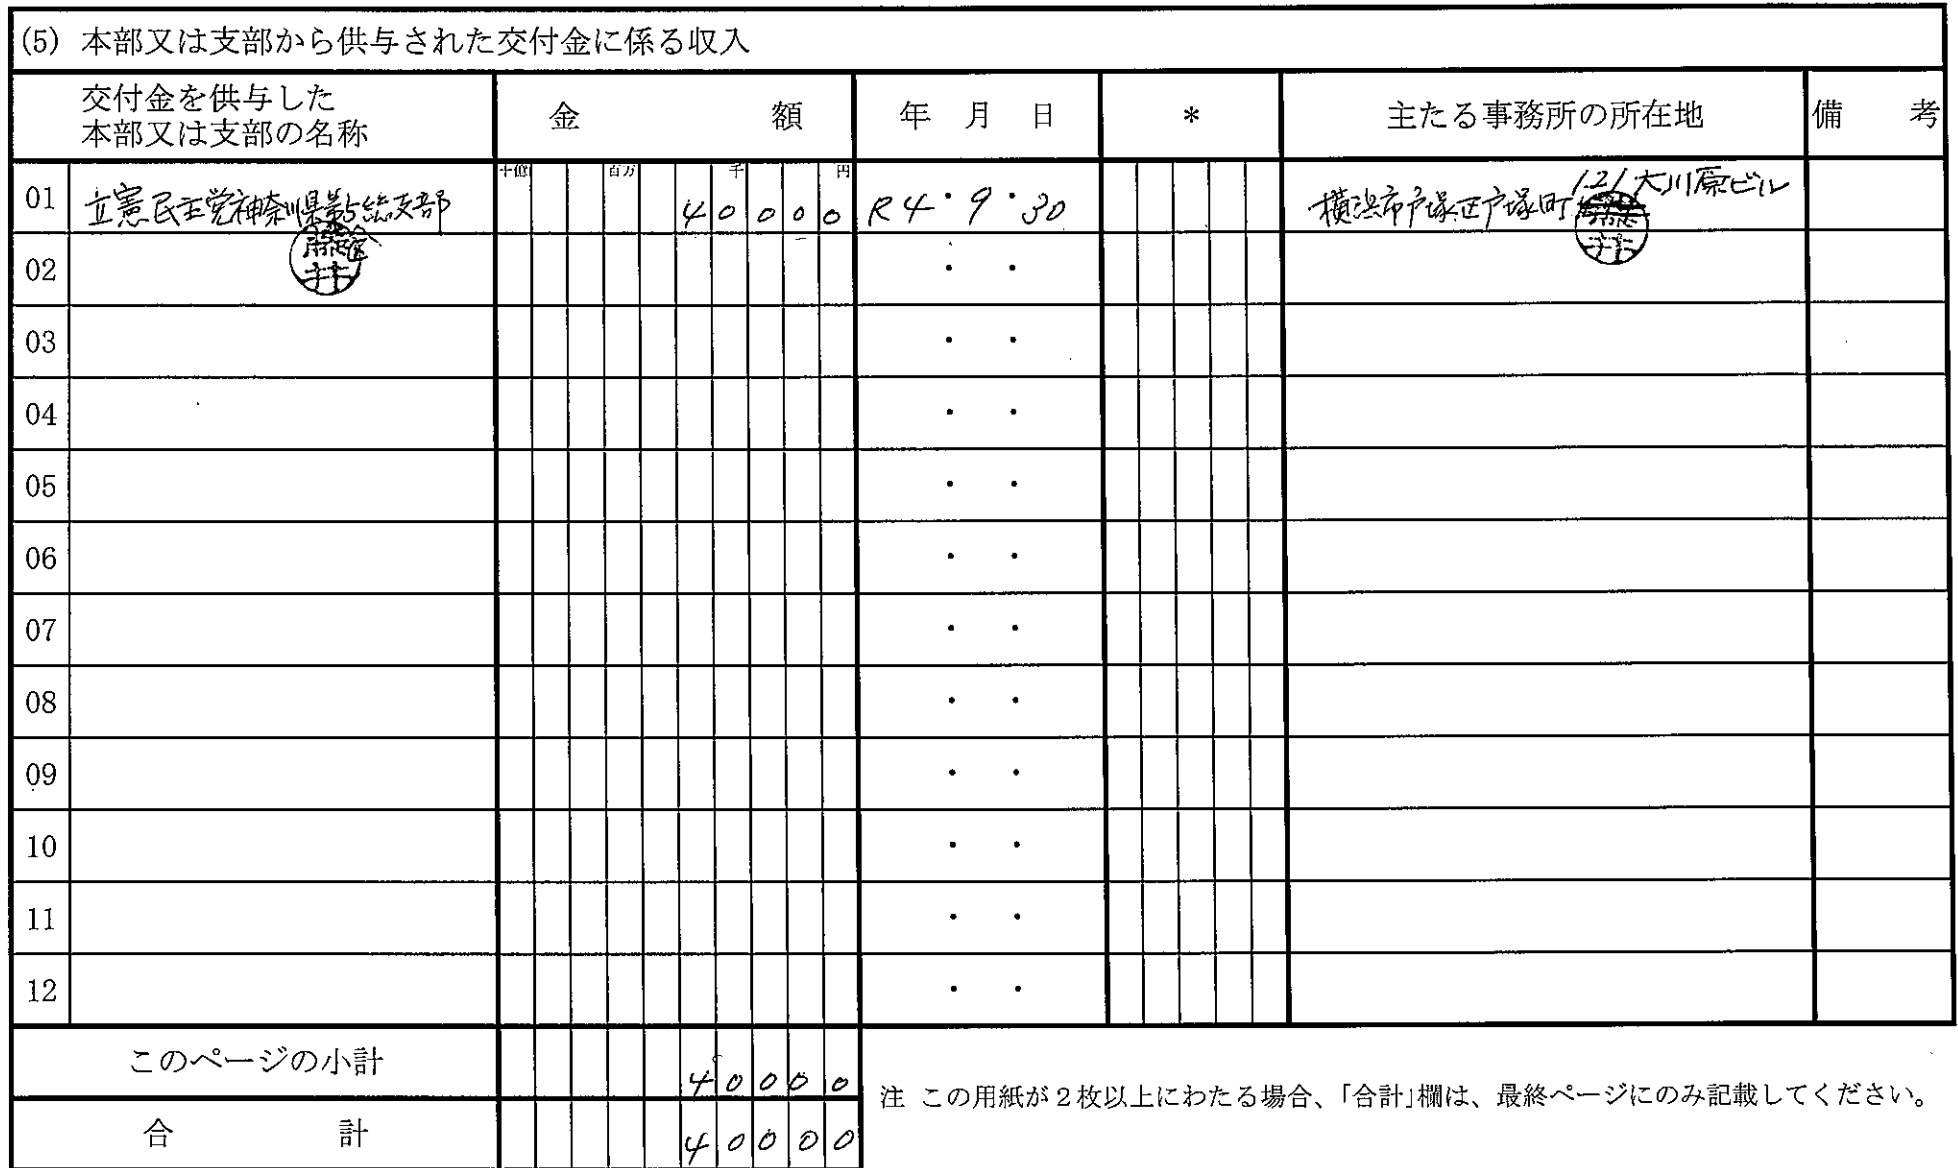 (5) 本部又は支部から供与された交付金に係る収入
交付金を供与した
本部又は支部の名称
金 額
年 月 日
*
主たる事務所の所在地
備 考
十億 百万 千 円
01 立憲民主党神奈川県第5総支部 40000 R4・9・30 横浜市戸塚区戸塚町121大川原ビル
藤井
藤井
02 ・ ・
03 ・ ・
04 ・ ・
05 ・ ・
06 ・ ・
07 ・ ・
08 ・ ・
09 ・ ・
10 ・ ・
11 ・ ・
12 ・ ・
このページの小計 40000
合 計 40000
注 この用紙が2枚以上にわたる場合、「合計」欄は、最終ページにのみ記載してください。